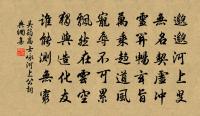 邈邈河上叟
無名契虛沖
靈關暢玄旨
萬乘趨道風
寵辱不可累
飄然在雲空
獨與造化友
誰能測無窮
吳筠高士詠河上公詞